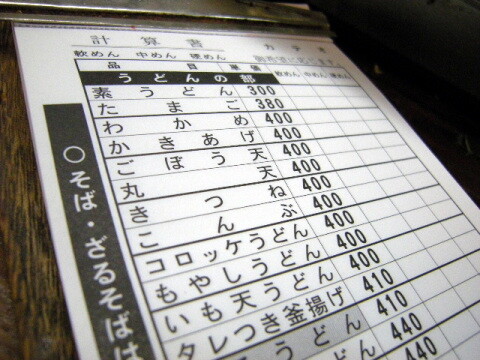 計算書
軟めん 中めん 硬めん
品 目 単価 軟めん 中めん 硬めん
うどんの部
素うどん 300
たまご 380
わかめ 400
かきあげ 400
ごぼう天 400
丸天 400
きつね 400
こんぶ 400
コロッケうどん 400
もやしうどん 400
いも天うどん 410
タレつき釜揚げ 410
うどん 440
440
○そば・ざるそばは